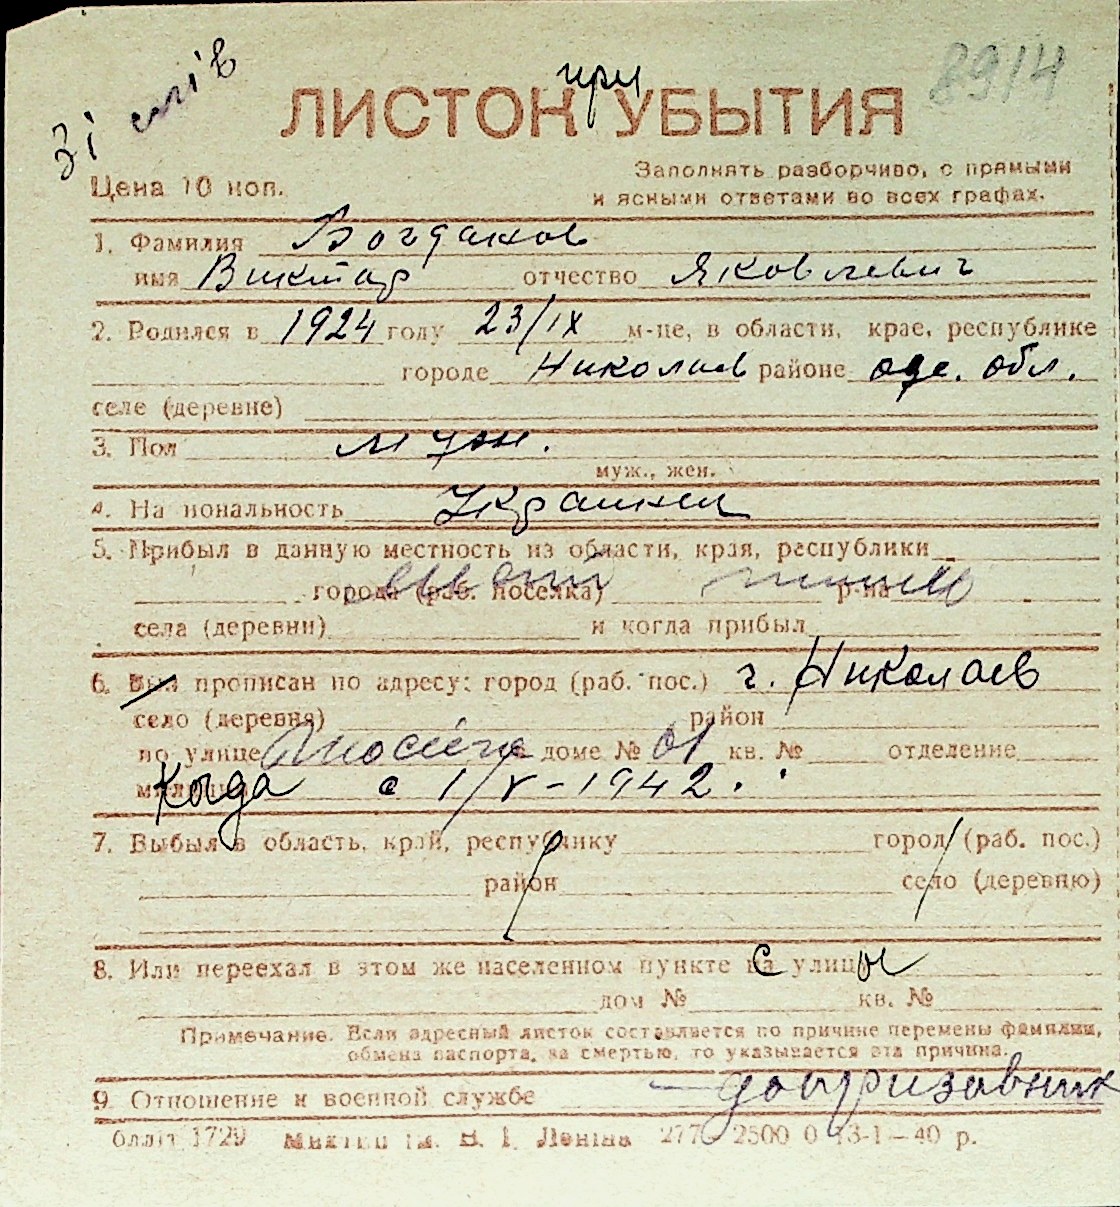 8914
зі слів
при
ЛИСТОК УБЫТИЯ
Заполнять разборчиво, с прямыми
Цена 10 коп.
и ясными ответами во всех графах.
1. Фамилия Богданов
имя Виктор отчество Яковлевич
2. Родился в 1924 году 23/IX м-це, в области, крае, республике
городе Николаев районе оде. обл.
селе (деревне)
3. Пол муж.
муж., жен.
4. На иональность Украинец
5. Прибыл в данную местность из области, края, республики
города (раб. поселка) р-на
села (деревни) и когда прибыл
6. Был прописан по адресу: город (раб. пос.) г. Николаев
село (деревня) район
по улице доме № 61 кв. № отделение
Когда с 1/V-1942.
7. Выбыл в область, край, республику город (раб. пос.)
район село (деревню)
8. Или переехал в этом же населенном пункте с улицы
дом № кв. №
Примечание. Если адресный листок составляется по причине перемены фамилии,
обмена паспорта, за смертью, то указывается эта причина.
9. Отношение к военной службе допризовник
1729 ім. В. І. Леніна 2500 0 13-1-40 р.